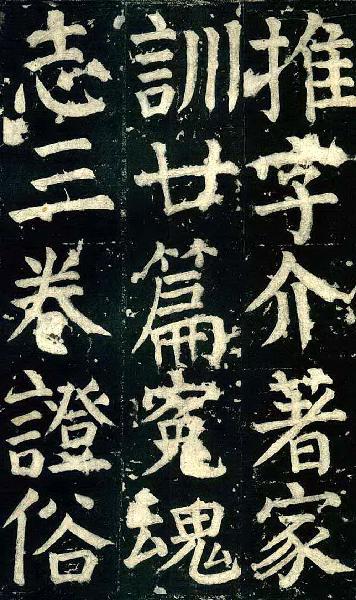 推字介著家
訓廿篇寃魂
志三卷證俗